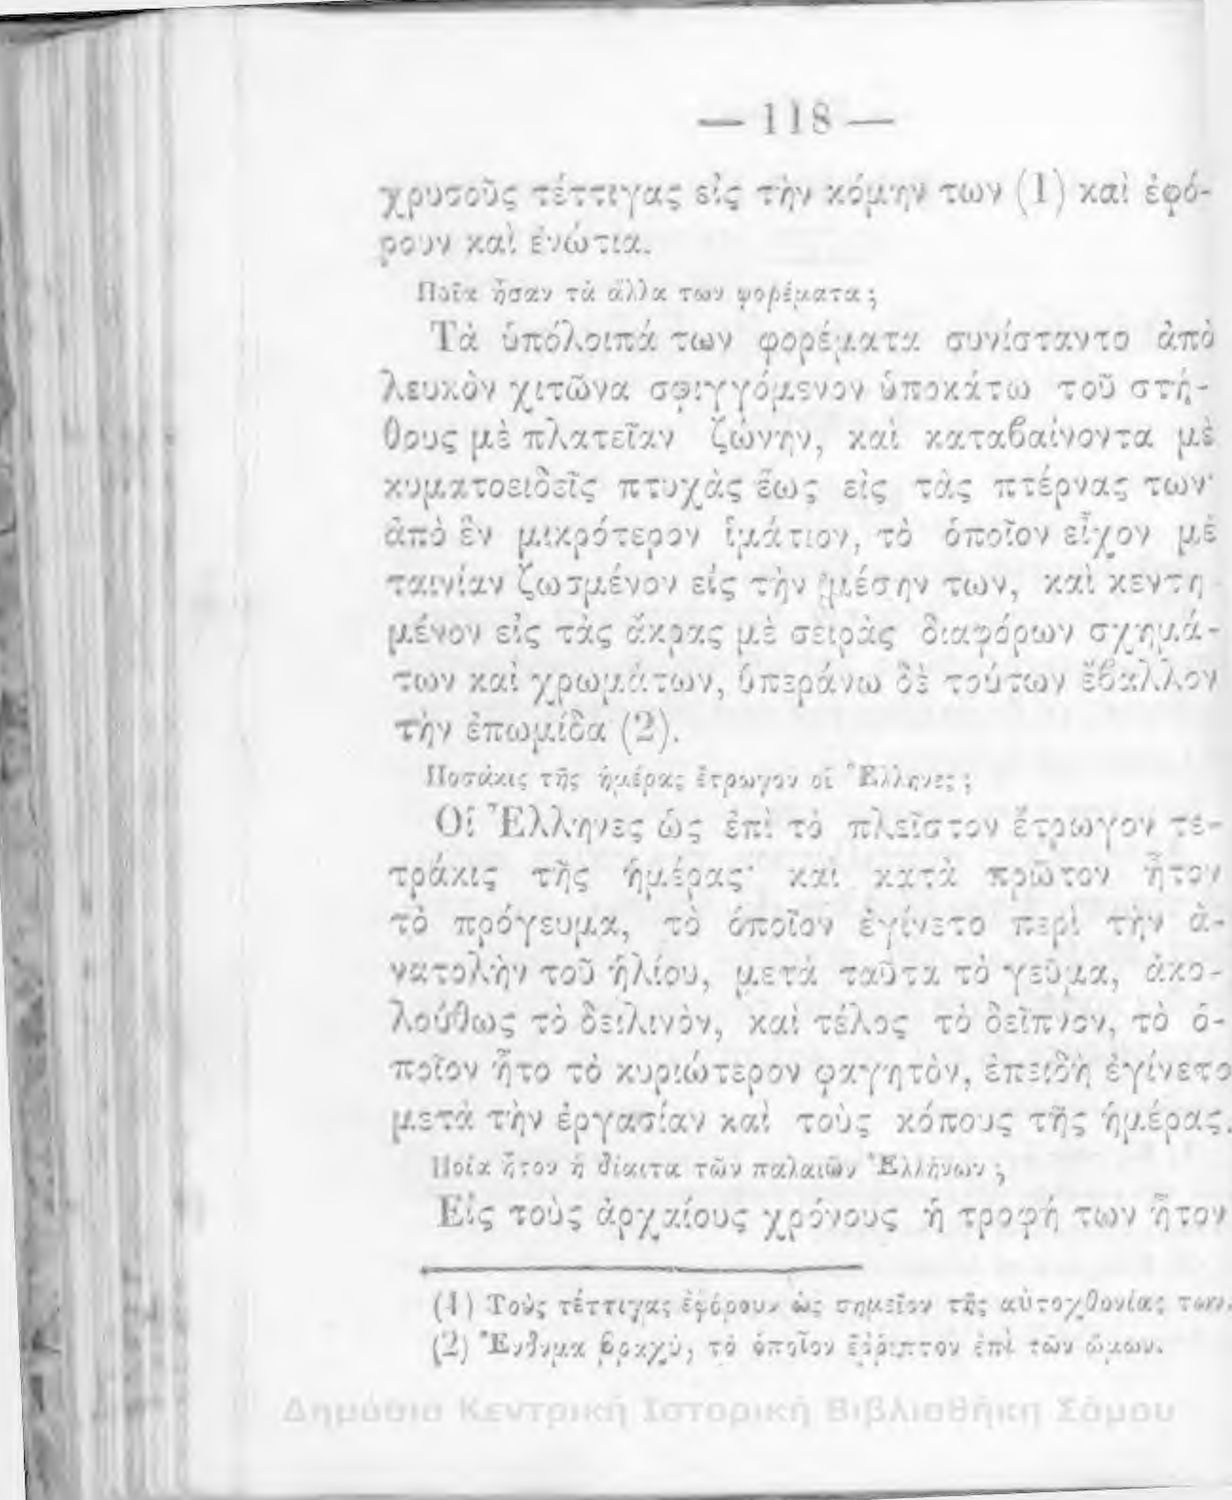 — 118 —
χρυσοῦς τέττιγας εἰς τὴν κόμην των (1) καὶ ἐφό-
ρουν καὶ ἐνώτια.
Ποῖα ἦσαν τὰ ἄλλα των φορέματα;
Τὰ ὑπόλοιπά των φορέματα συνίσταντο ἀπὸ
λευκὸν χιτῶνα σφιγγόμενον ὑποκάτω τοῦ στή-
θους μὲ πλατεῖαν ζώνην, καὶ καταβαίνοντα μὲ
κυματοειδεῖς πτυχὰς ἕως εἰς τὰς πτέρνας των·
ἀπὸ ἓν μικρότερον ἱμάτιον, τὸ ὁποῖον εἶχον μὲ
ταινίαν ζωσμένον εἰς τὴν μέσην των, καὶ κεντη-
μένον εἰς τὰς ἄκρας μὲ σειρὰς διαφόρων σχημά-
των καὶ χρωμάτων, ὑπεράνω δὲ τούτων ἔβαλλον
τὴν ἐπωμίδα (2).
Ποσάκις τῆς ἡμέρας ἔτρωγον οἱ Ἕλληνες;
Οἱ Ἕλληνες ὡς ἐπὶ τὸ πλεῖστον ἔτρωγον τε-
τράκις τῆς ἡμέρας· καὶ κατὰ πρῶτον ἦτον
τὸ πρόγευμα, τὸ ὁποῖον ἐγίνετο περὶ τὴν ἀ-
νατολὴν τοῦ ἡλίου, μετὰ ταῦτα τὸ γεῦμα, ἀκο-
λούθως τὸ δειλινὸν, καὶ τέλος τὸ δεῖπνον, τὸ ὁ-
ποῖον ἦτο τὸ κυριώτερον φαγητὸν, ἐπειδὴ ἐγίνετο
μετὰ τὴν ἐργασίαν καὶ τοὺς κόπους τῆς ἡμέρας.
Ποία ἦτον ἡ δίαιτα τῶν παλαιῶν Ἑλλήνων;
Εἰς τοὺς ἀρχαίους χρόνους ἡ τροφή των ἦτον
(1) Τοὺς τέττιγας ἐφόρουν ὡς σημεῖον τῆς αὐτοχθονίας των.
(2) Ἔνδυμα βραχὺ, τὸ ὁποῖον ἔῤῥιπτον ἐπὶ τῶν ὤμων.
Δημόσια Κεντρική Ιστορική Βιβλιοθήκη Σάμου